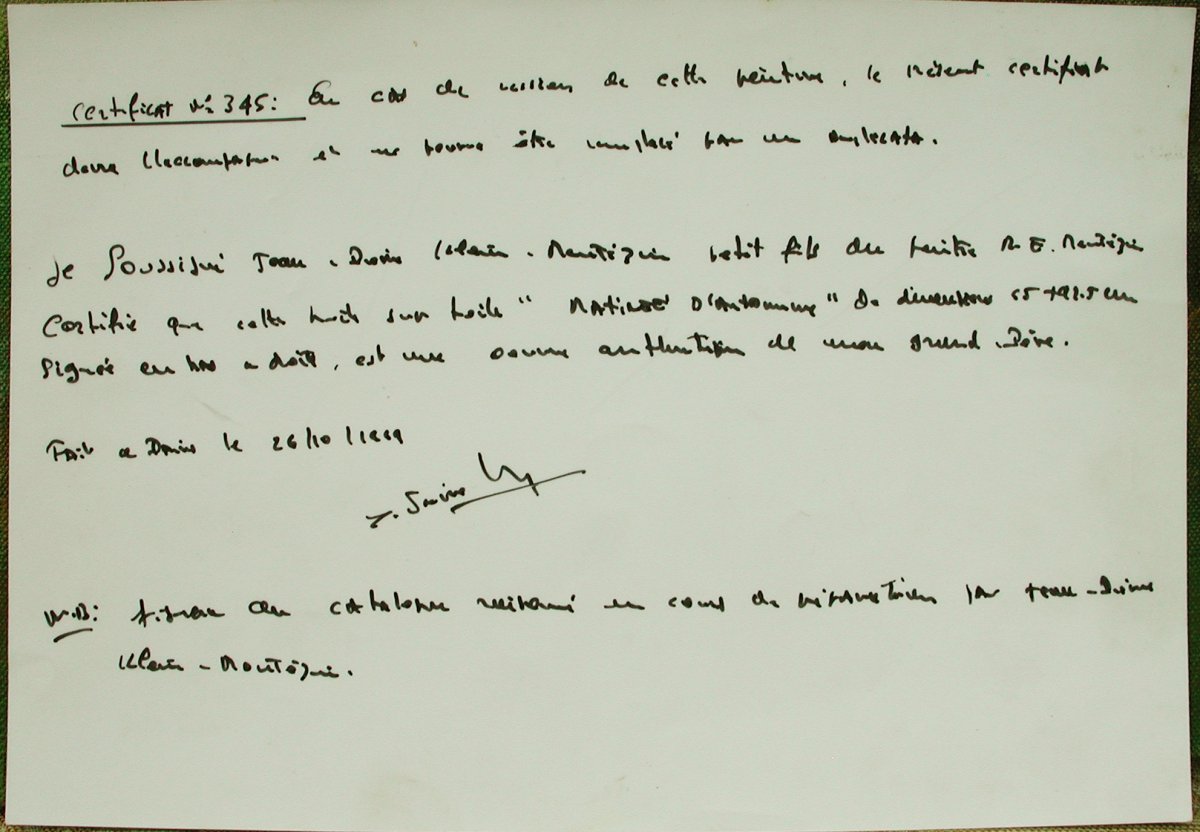 Certificat N° 345: En cas de cession de cette peinture, le présent certificat
devra l'accompagner et ne pourra être remplacé par un duplicata.
Je Soussigné Jean-Denis Klein-Montézin petit fils du peintre P. E. Montézin
Certifie que cette huile sur toile " MATINÉE D'Automne" De dimensions
Signée en bas a droite, est une oeuvre authentique de mon grand-Père.
Fait a Paris le 26/10/1999
N.B: figure au catalogue raisonné en cours de préparation par
Klein-Montézin.